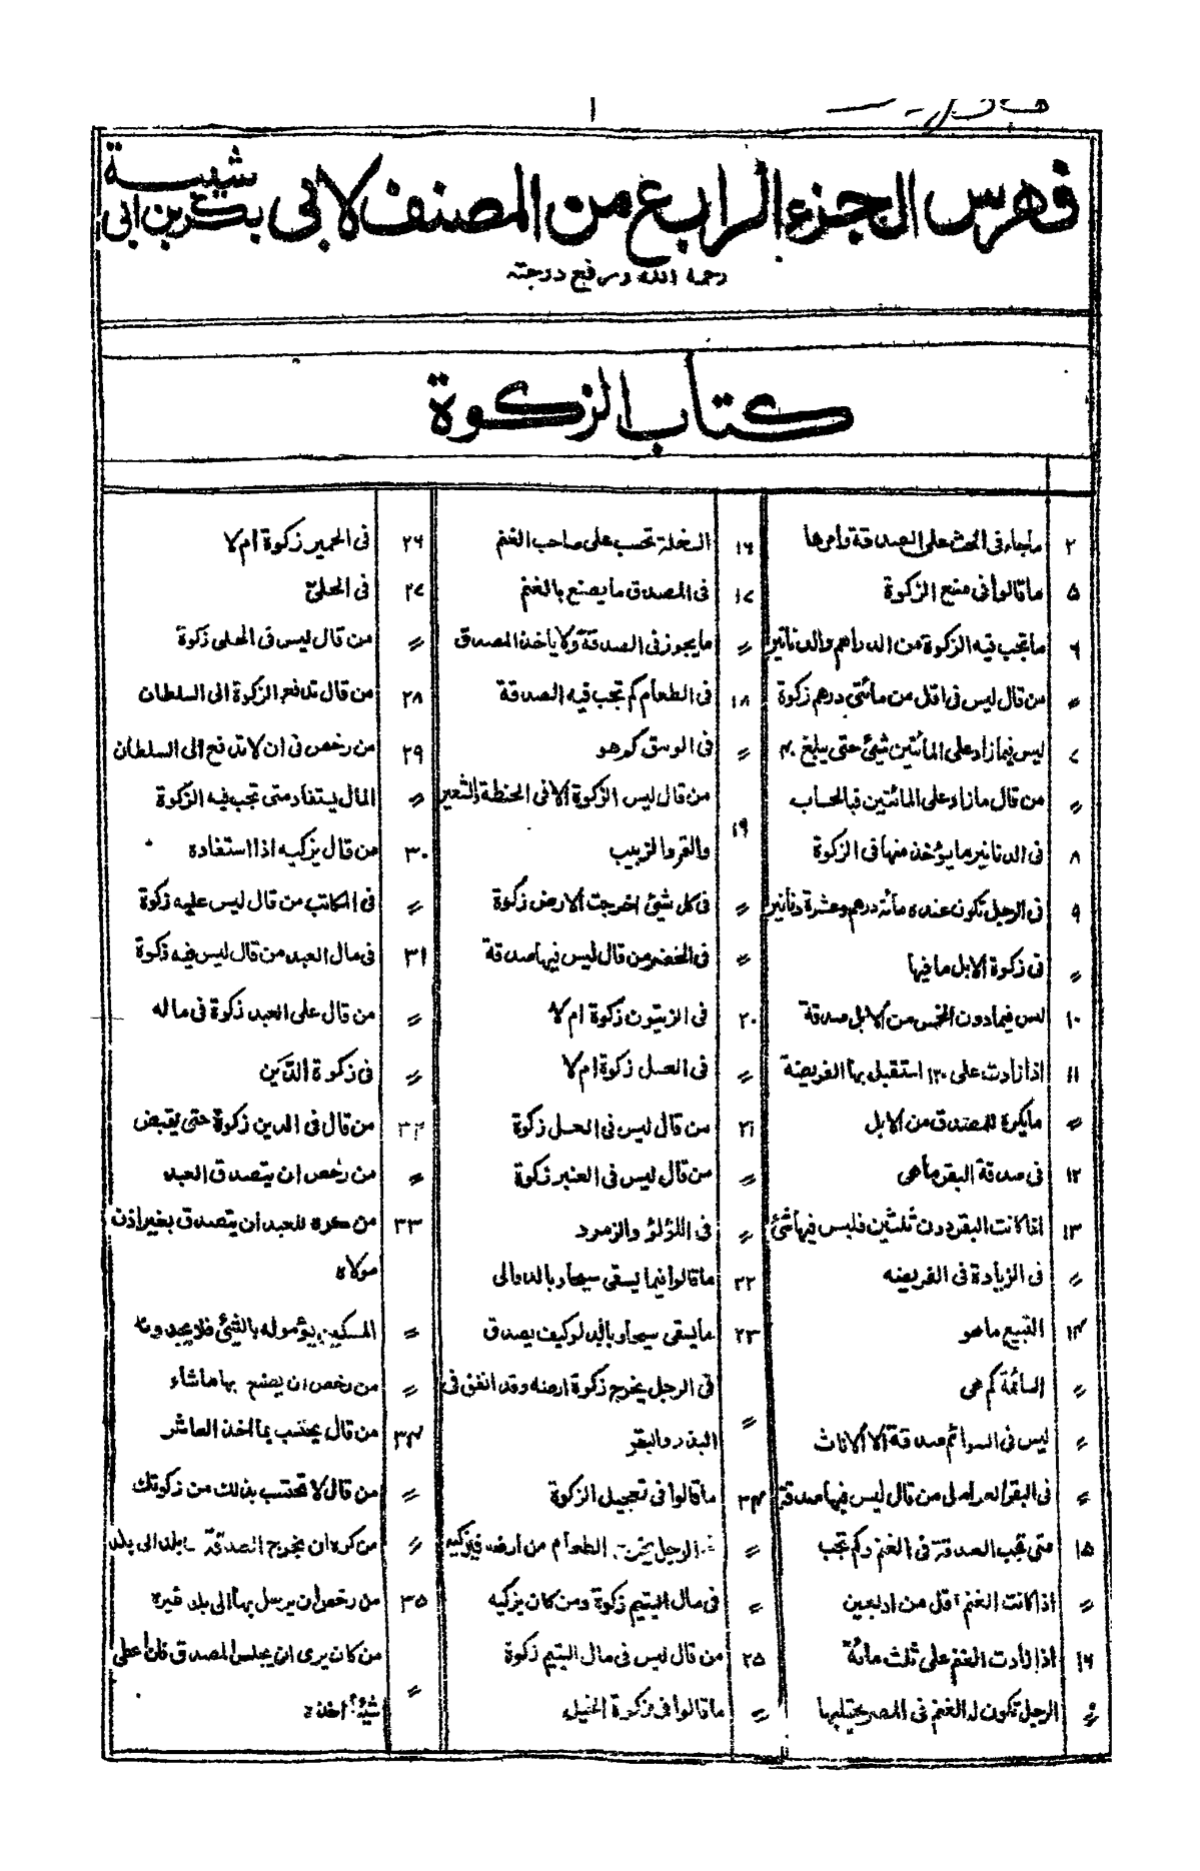 ١
فهرس الجزء الرابع من المصنف لابی بكر بن ابی شيبة
رحمة الله ورفع درجته
كتاب الزكوة
٢ ماجاء فی الحث علی الصدقة وامرها
٥ ما قالوا فی منع الزكوة
٦ ما تجب فيه الزكوة من الدراهم والدنانير
〃 من قال ليس فی اقل من مأتی درهم زكوة
٧ ليس فيما زاد علی المائتين شیٔ حتی يبلغ ٤٠
〃 من قال ما زاد علی المائتين فبالحساب
٨ فی الدنانير ما يؤخذ منها فی الزكوة
٩ فی الرجل تكون عنده مأئة درهم وعشرة دنانير
〃 فی زكوة الابل ما فيها
١٠ ليس فيما دون الخمس من الابل صدقة
١١ اذا زادت علی ١٢٠ استقبل بها الفريضة
〃 مايكره للمصدق من الابل
١٢ فی صدقة البقر ما هی
١٣ اذا كانت البقر دون ثلثين فليس فيها شیٔ
〃 فی الزيادة فی الفريضه
١٤ التبيع ماهو
〃 السائمة كم هی
〃 ليس فی السوائم صدقة الا الاناث
〃 فی البقر العوامل من قال ليس فيها صدقة
١٥ متی تجب الصدقة فی الغنم وكم تجب
〃 اذا كانت الغنم اقل من اربعين
١٦ اذا زادت الغنم علی ثلث مائة
〃 الرجل تكون له الغنم فی المصر يحتلبها
١٦ السخلة تحسب علی صاحب الغنم
١٧ فی المصدق مايصنع بالغنم
〃 مايجوز فی الصدقة ولا ياخذ المصدق
١٨ فی الطعام كم تجب فيه الصدقة
〃 فی الوسق كم هو
١٩ من قال ليس الزكوة الا فی الحنطة والشعير
والتمر والزبيب
〃 فی كل شیٔ اخرجت الارض زكوة
〃 فی الخضر من قال ليس فيها صدقة
٢٠ فی الزيتون زكوة ام لا
〃 فی العسل زكوة ام لا
٢١ من قال ليس فی العسل زكوة
〃 من قال ليس فی العنبر زكوة
〃 فی اللؤلؤ والزمرد
٢٢ ما قالوا فيما يسقی سيحا وبالدوالی
٢٣ مايسقی سيحا وبالدلو كيف يصدق
〃 فی الرجل يخرج زكوة ارضه وقد انفق فی
البذر والبقر
٢٤ ما قالوا فی تعجيل الزكوة
〃 الرجل يخرج الطعام من ارضه فيزكيه
〃 فی مال اليتيم زكوة ومن كان يزكيه
٢٥ من قال ليس فی مال اليتيم زكوة
〃 ما قالوا فی زكوة الخيل
٢٦ فی الحمير زكوة ام لا
٢٧ فی الحلی
〃 من قال ليس فی الحلی زكوة
٢٨ من قال تدفع الزكوة الی السلطان
٢٩ من رخص فی ان لا تدفع الی السلطان
〃 المال يستفاد متی تجب فيه الزكوة
٣٠ من قال يزكيه اذا استفاده
〃 فی المكاتب من قال ليس عليه زكوة
٣١ فی مال العبد من قال ليس فيه زكوة
〃 من قال علی العبد زكوة فی ماله
〃 فی زكوة الدَّين
٣٢ من قال فی الدين زكوة حتی يقبض
〃 من رخص ان يتصدق العبد
٣٣ من كره للعبد ان يتصدق بغير اذن
مولاه
〃 المسكين يؤمر له بالشیٔ فلا يجدونه
〃 من رخص ان يصنع بها ماشاء
٣٤ من قال يحتسب بما اخذ العاشر
〃 من قال لا تحتسب بذلك من زكوتك
〃 من كره ان يخرج الصدقة من بلد الی بلد
٣٥ من رخص ان يرسل بها الی بلد غيره
〃 من كان يری ان يجلس المصدق فان اعطی
شيئا اخذه